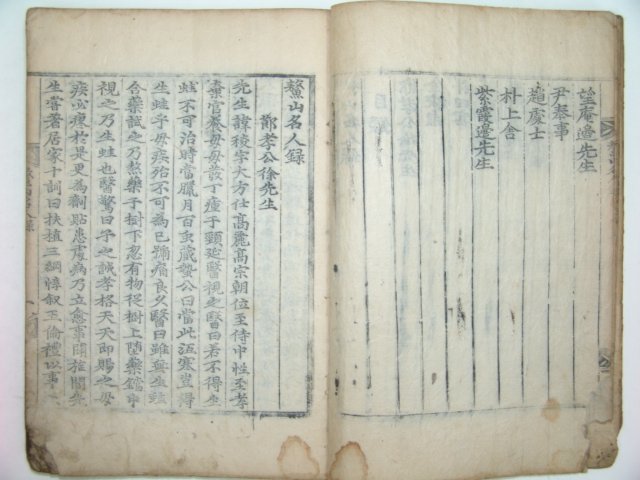 望庵邊先生
尹奉事
趙處士
朴上舍
紫霞邊先生
鰲山名人錄
節孝公徐先生
先生諱稜字大方仕高麗高宗朝位至侍中性至孝
棄官養母母發丁瘇于頸延醫視之醫曰若不得生
蛙不可治時當臘月百虫藏蟄公曰當此沍寒豈得
生蛙乎母疾殆不可為已號痛良久醫曰雖無生蛙
合藥試之乃熬藥于樹下忽有物從樹上墮藥鐺中
視之乃生蛙也醫驚曰子之誠孝格天天卽賜之母
疾必瘳於是更為劑貼患處病乃立愈事聞旌閭先
生嘗著居家十訓曰扶植三綱惇叙五倫禮以事